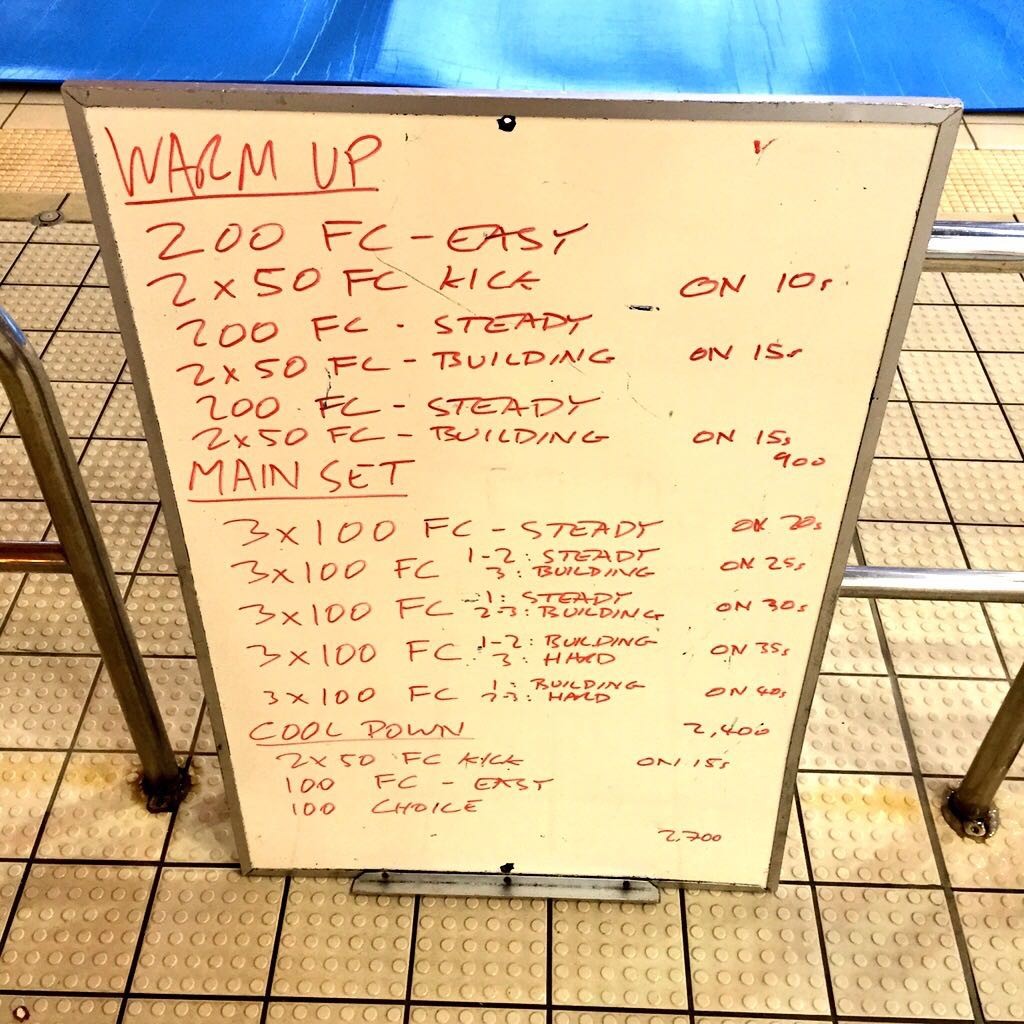 WARM UP
200 FC - EASY
2 x 50 FC KICK ON 10s
200 FC - STEADY
2 x 50 FC - BUILDING ON 15s
200 FC - STEADY
2 x 50 FC - BUILDING ON 15s
900
MAIN SET
3 x 100 FC - STEADY ON 20s
3 x 100 FC 1-2: STEADY ON 25s
3: BUILDING
3 x 100 FC - 1: STEADY ON 30s
2-3: BUILDING
3 x 100 FC 1-2: BUILDING ON 35s
3: HARD
3 x 100 FC 1: BUILDING ON 40s
2-3: HARD
COOL DOWN 2,400
2 x 50 FC KICK ON 15s
100 FC - EASY
100 CHOICE
2,700